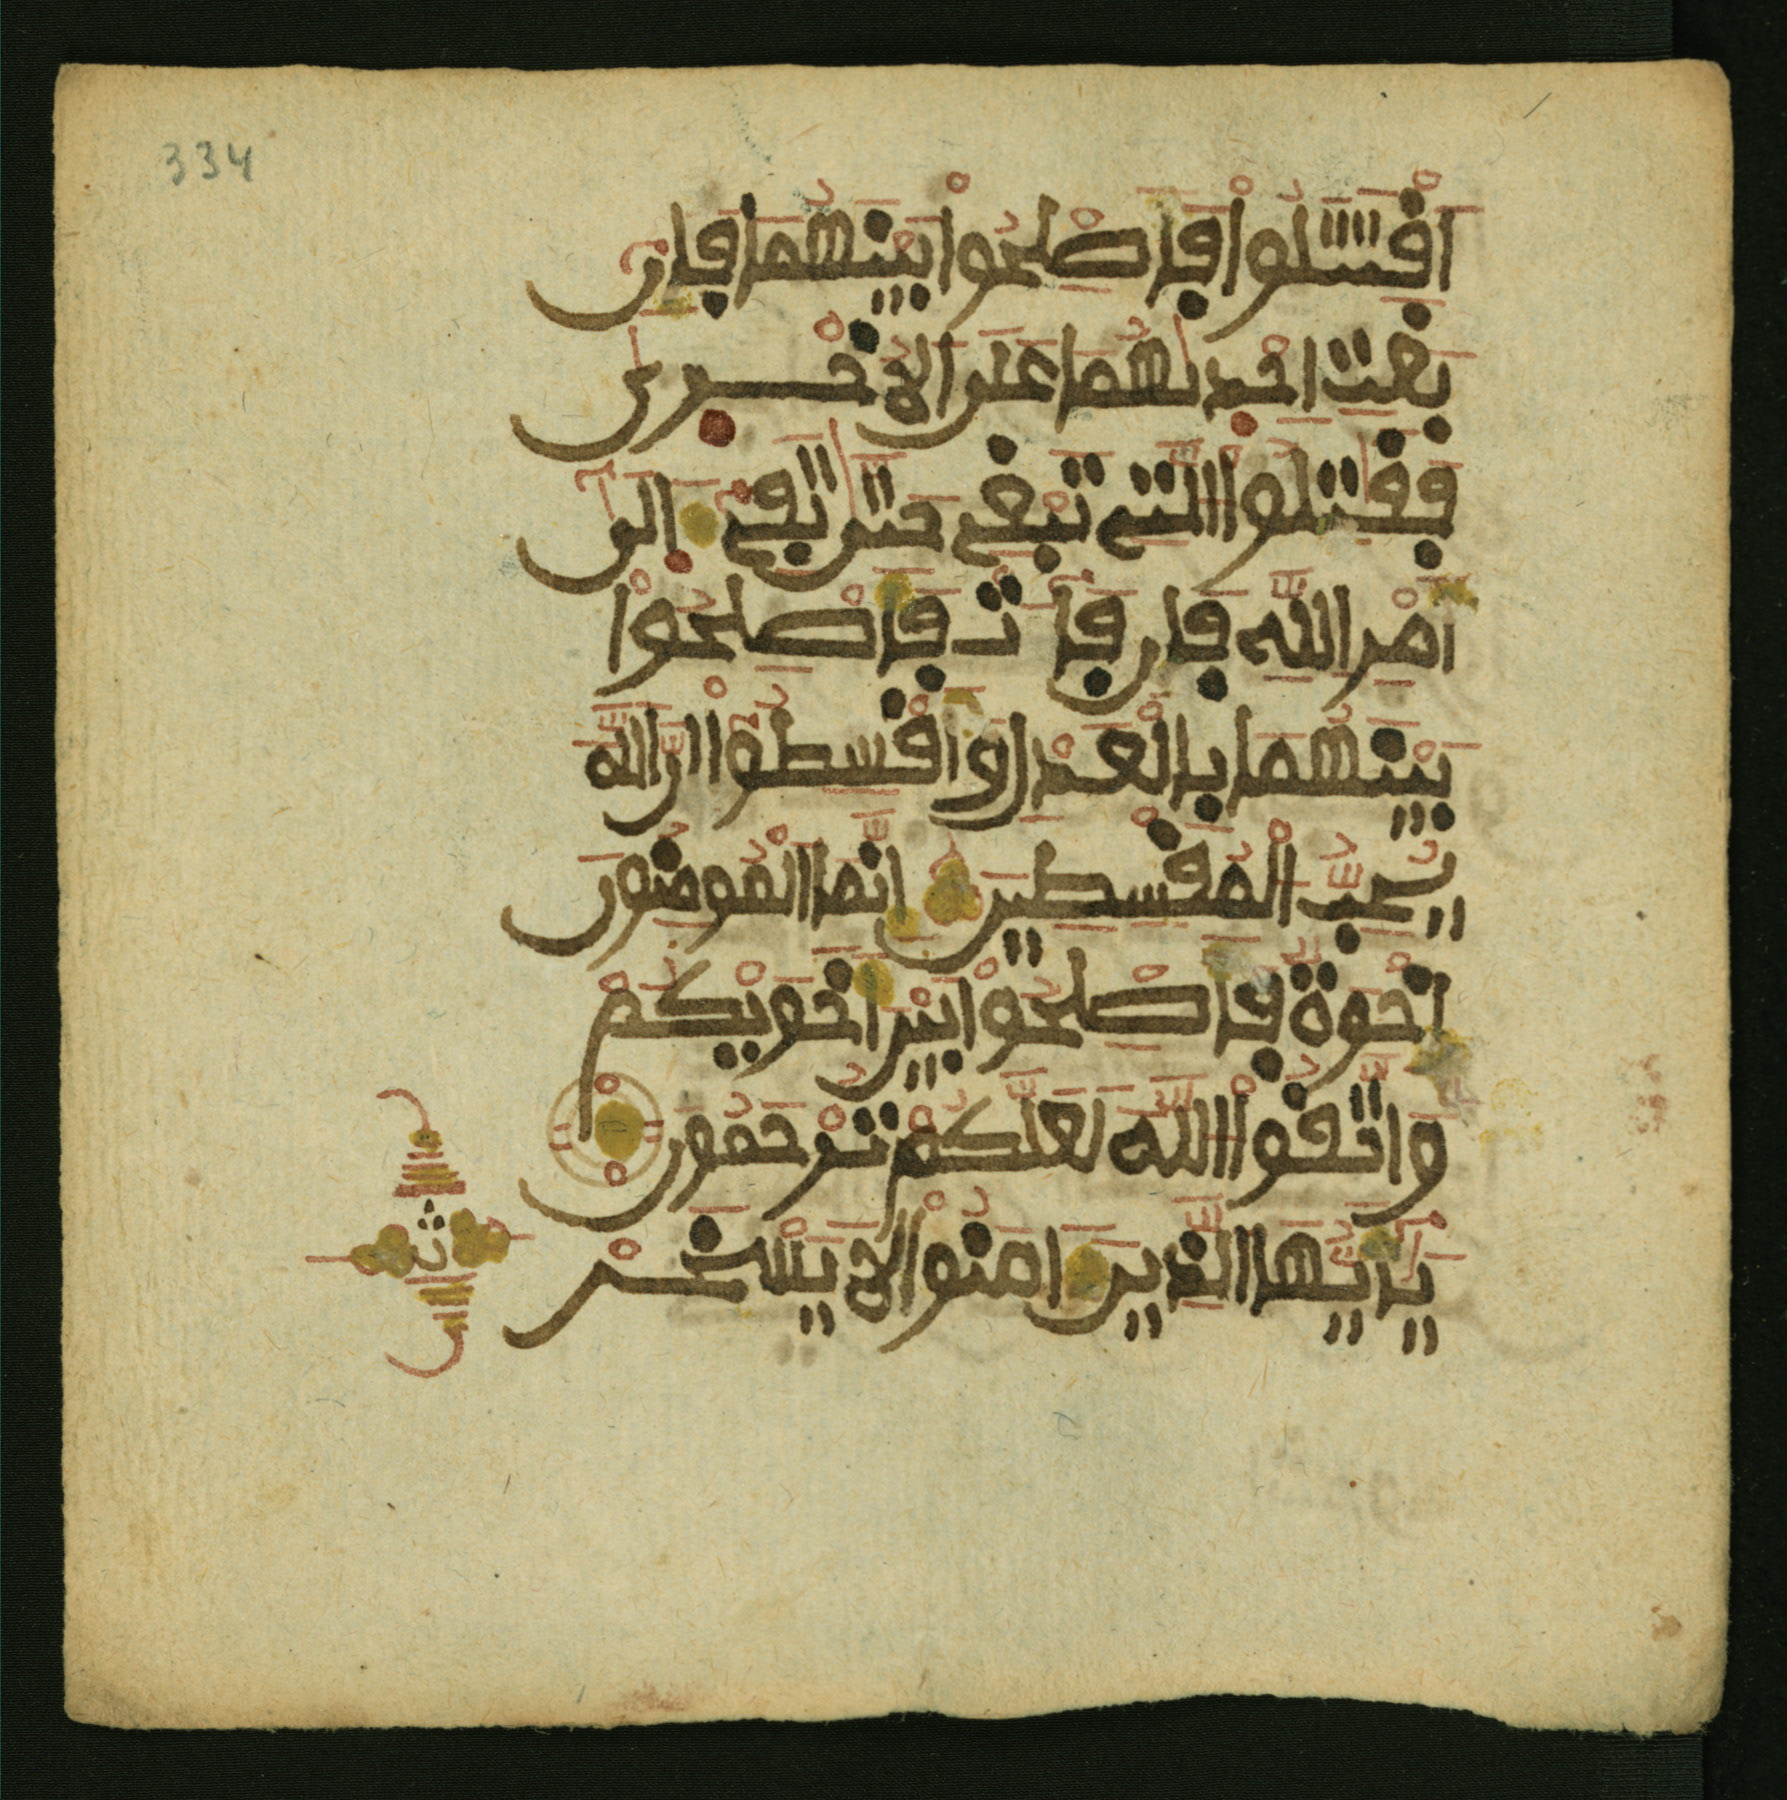 334
اَقْتَتَلُواْ فَأَصْلِحُواْ بَيْنَهُمَا فَإِن
بَغَتِ اِحْدَىٰهُمَا عَلَى اَلُاخْرَىٰ
فَقَٰتِلُواْ اُلتِے تَبْغِے حَتَّىٰ تَفِےءَ إِلَىٰٓ
أَمْرِ اِللَّهِ فَإِن فَآءَتْ فَأَصْلِحُواْ
بَيْنَهُمَا بِالْعَدْلِ وَأَقْسِطُوٓاْ إِنَّ اَللَّهَ
يُحِبُّ اُلْمُقْسِطِينَ إِنَّمَا اَلْمُومِنُونَ
إِخْوَةٌ فَأَصْلِحُواْ بَيْنَ أَخَوَيْكُمْ
وَاتَّقُواْ اُللَّهَ لَعَلَّكُمْ تُرْحَمُونَ
يَٰٓأَيُّهَا اَلَّذِينَ ءَامَنُواْ لَا يَسْخَرْ
ث